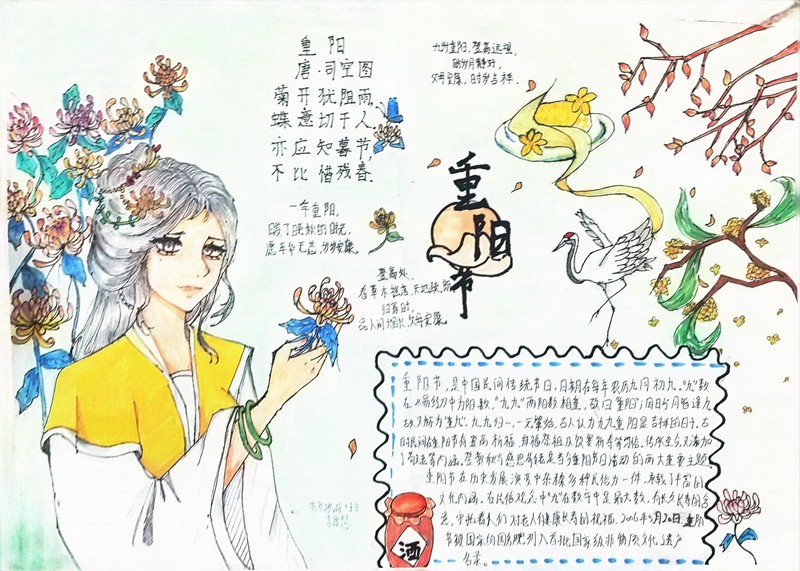 重阳
唐·司空图
菊开犹阻雨,
蝶意切于人.
亦应知暮节,
不比惜残春.
一年重阳,
暖了晚秋的时光,
愿年华无恙,岁岁安康.
登高处,
看草木
归家时,
品人间烟火,父母安康.
九月重阳,登高远望,
愿岁月静好,
父母安康,时岁吉祥.
重阳节
重阳节,是中国民间传统节日,日期在每年农历九月初九."九"数
在《易经》中为阳数,"九九"两阳数相重,故曰"重阳";因日与月皆逢九,
故又称为"重九".九九归一,一元肇始,古人认为九九重阳是吉祥的日子.古
时民间在重阳节有登高祈福、拜神祭祖及饮宴祈寿等习俗.传承至今,又添加
了敬老等内涵.登高赏秋与感恩敬老是当今重阳节日活动的两大重要主题.
重阳节在历史发展演变中杂糅多种民俗为一体,承载了丰富的
文化内涵.在民俗观念中"九"在数字中是最大数,有长久长寿的含
意,寄托着人们对老人健康长寿的祝福.2006年5月20日,重阳
节被国务院列入首批国家级非物质文化遗产
名录。
酒